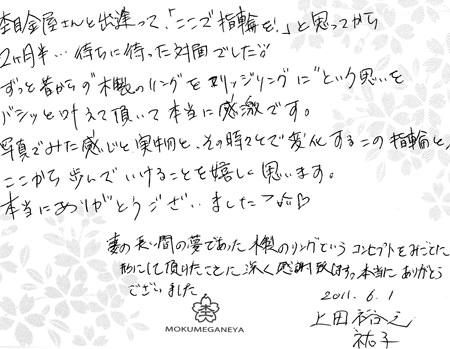 杢目金屋さんと出逢って、「ここで指輪を!」と思ってから
2ヶ月半…待ちに待った対面でした♪
ずっと昔からの"木製のリングをマリッジリングに"という思いを
バシッと叶えて頂いて本当に感激です。
写真でみた感じと実物と、その時々とで変化するこの指輪と、
ここから歩んでいけることを嬉しく思います。
本当にありがとうございました♡
妻の長い間の夢であった木製のリングというコンセプトをみごとに
形にして頂けたことに深く感謝致します。本当にありがとう
ございました
2011.6.1
MOKUMEGANEYA
上田
祐子